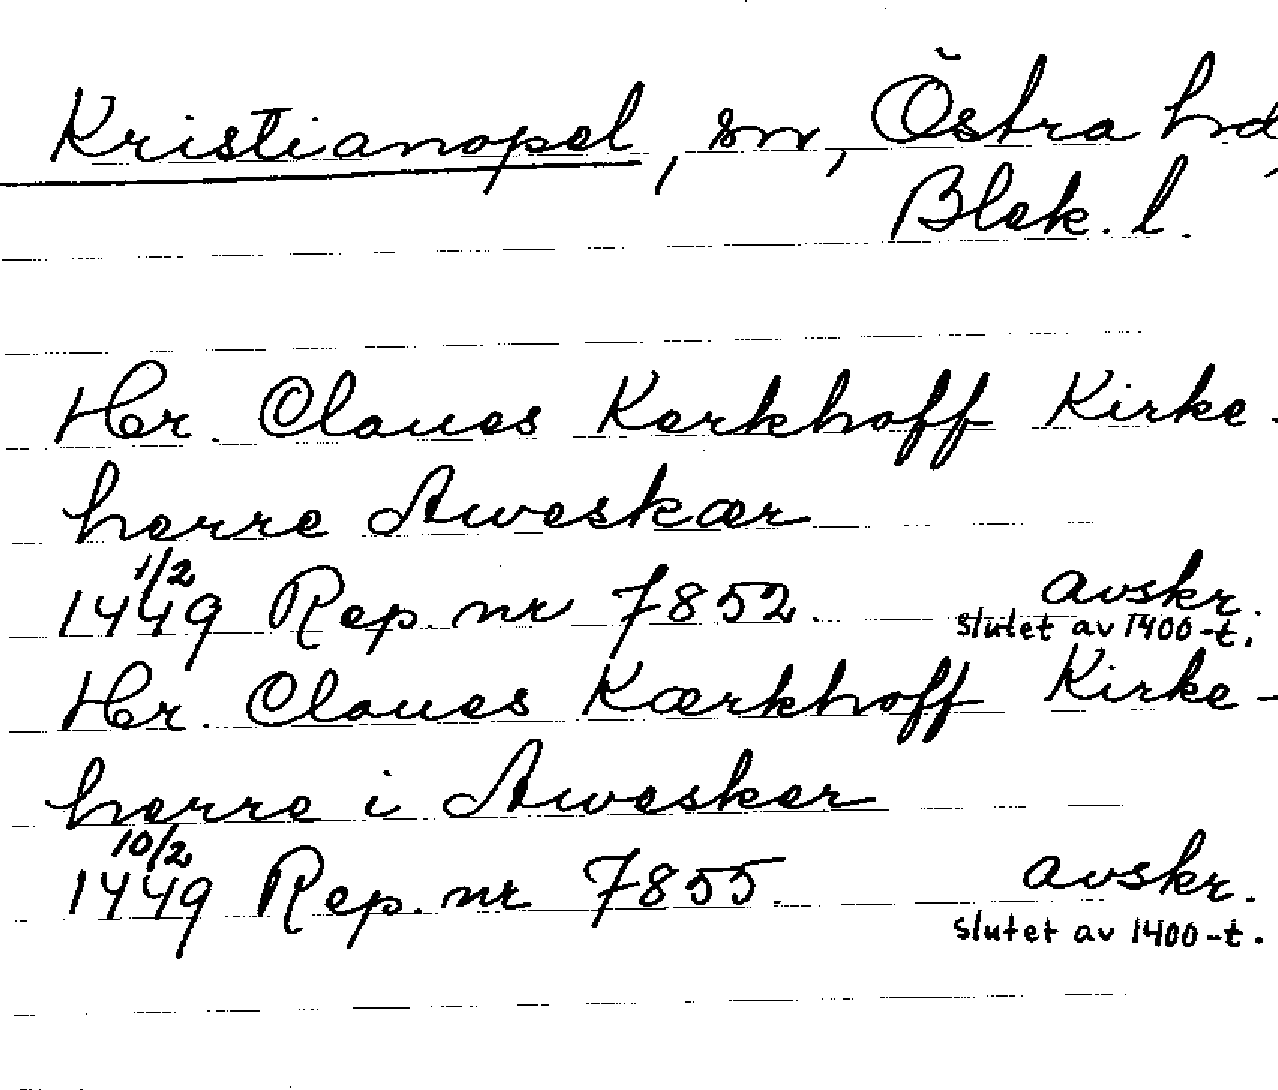 Kristianopel, sn, Östra hd,
Blek. l.
Hr. Claues Kerkhoff Kirke-
herre Aweskær
1/2
1449 Rep. nr 7852. avskr.
slutet av 1400-t.
Hr. Claues Kærkhoff Kirke-
herre i Awesker
10/2
1449 Rep. nr 7855. avskr.
slutet av 1400-t.